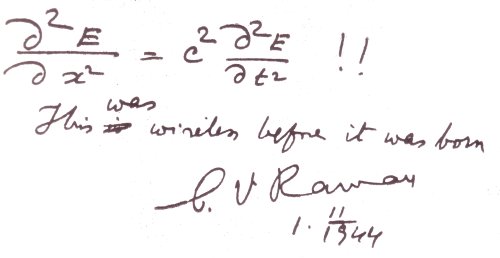 ∂²E/∂x² = c² ∂²E/∂t² !!
This was wireless before it was born
C. V. Raman
1. 11/1944